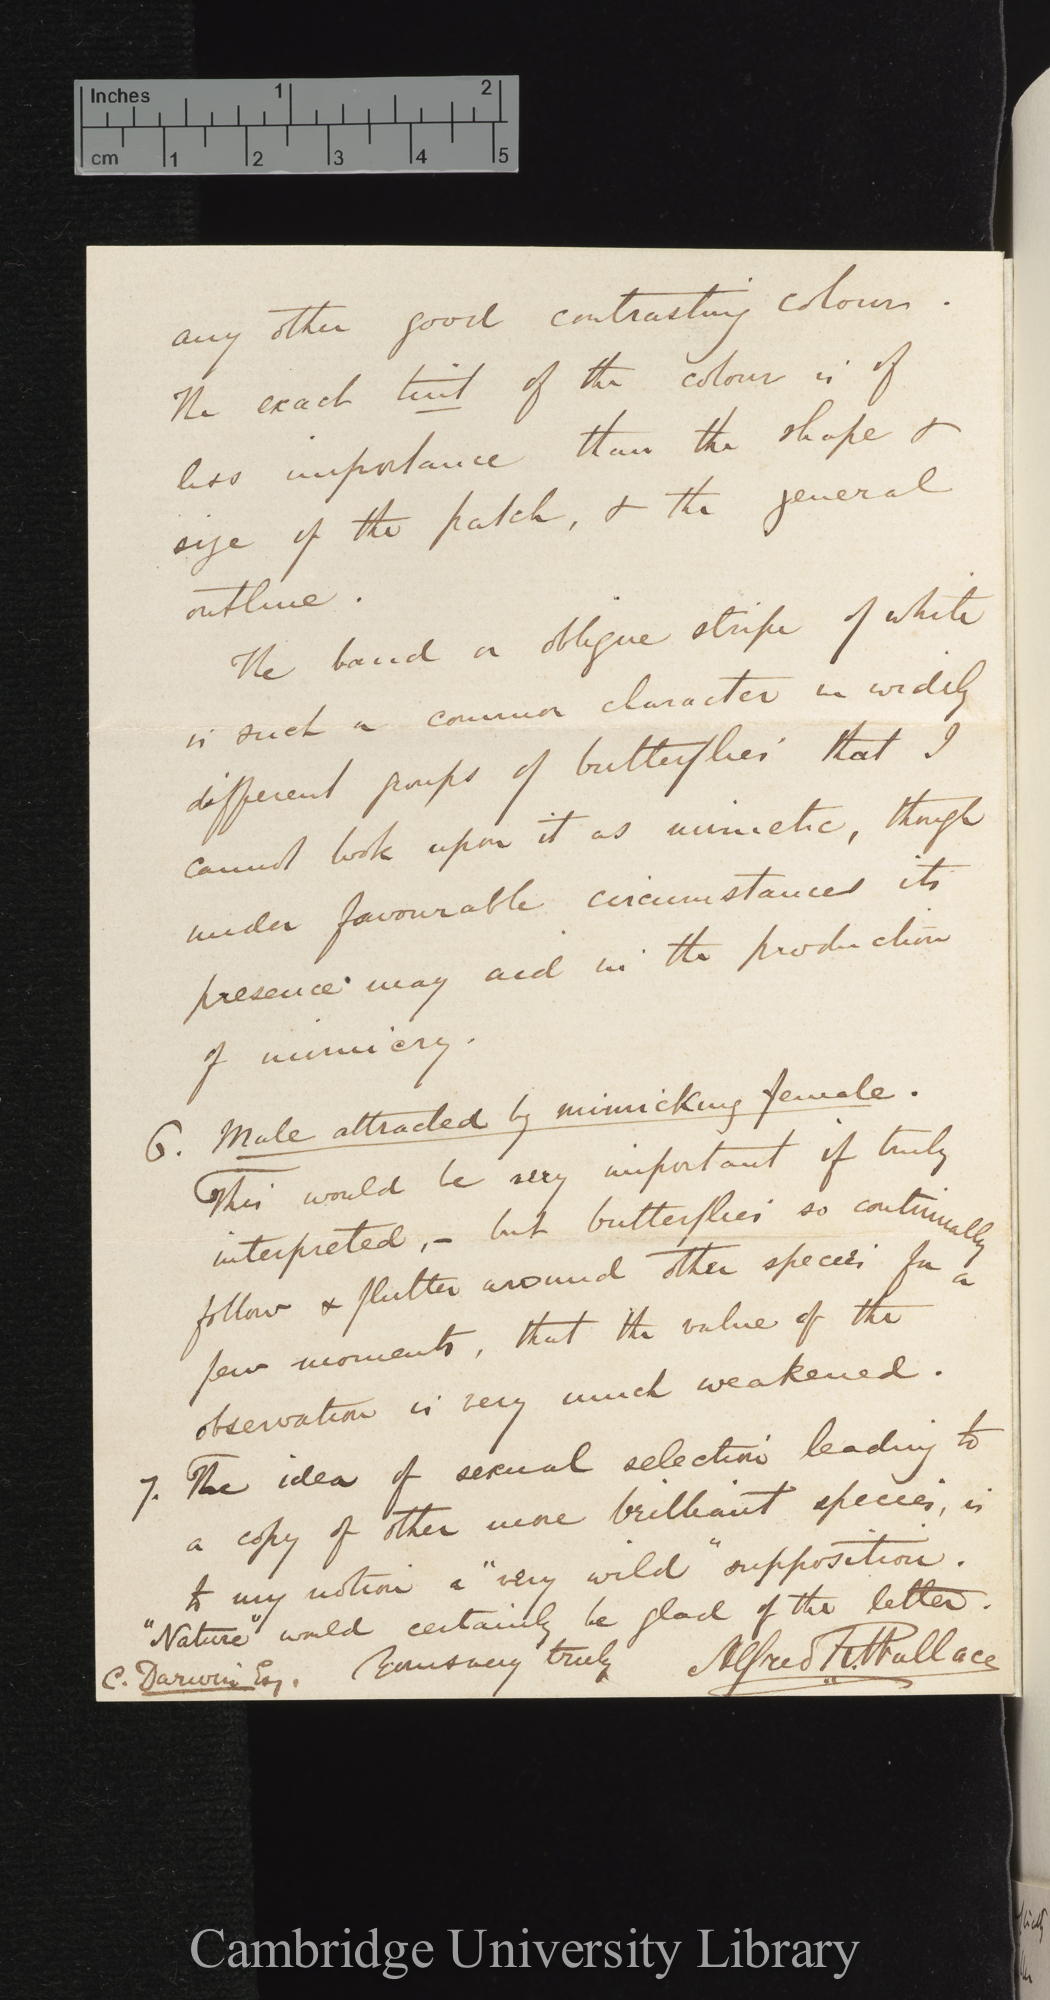 Inches 1 2
cm 1 2 3 4 5
any other good contrasting colours.
The exact tint of the colour is of
less importance than the shape &
size of the patch, & the general
outline.
The band or oblique stripe of white
is such a common character in widely
different groups of butterflies that I
cannot look upon it as mimetic, though
under favourable circumstances its
presence may aid in the production
of mimicry.
6. Male attracted by mimicking female.
This would be very important if truly
interpreted,– but butterflies so continually
follow & flutter around other species for a
few moments, that the value of the
observation is very much weakened.
7. The idea of sexual selection leading to
a copy of other more brilliant species, is
to my notion a "very wild" supposition.
"Nature" would certainly be glad of the letter.
C. Darwin Esq. Yours very truly Alfred R. Wallace
Cambridge University Library